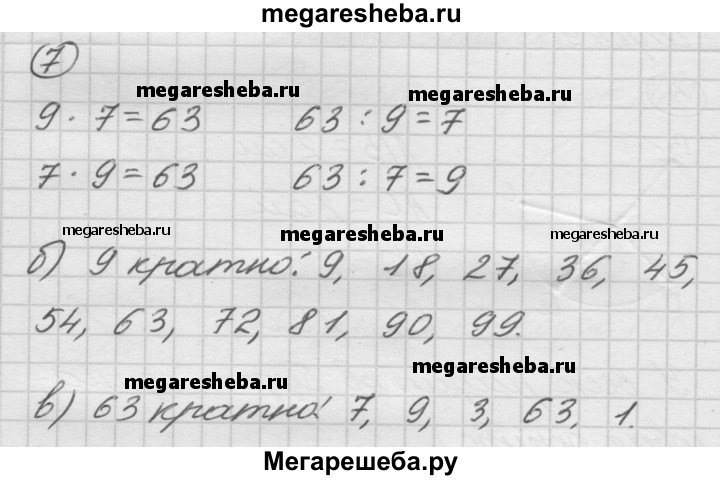 megaresheba.ru
7
megaresheba.ru megaresheba.ru
9 · 7 = 63 63 : 9 = 7
7 · 9 = 63 63 : 7 = 9
megaresheba.ru megaresheba.ru megaresheba.ru
б) 9 кратно: 9, 18, 27, 36, 45,
54, 63, 72, 81, 90, 99.
megaresheba.ru megaresheba.ru
в) 63 кратно: 7, 9, 3, 63, 1.
Мегарешеба.ру